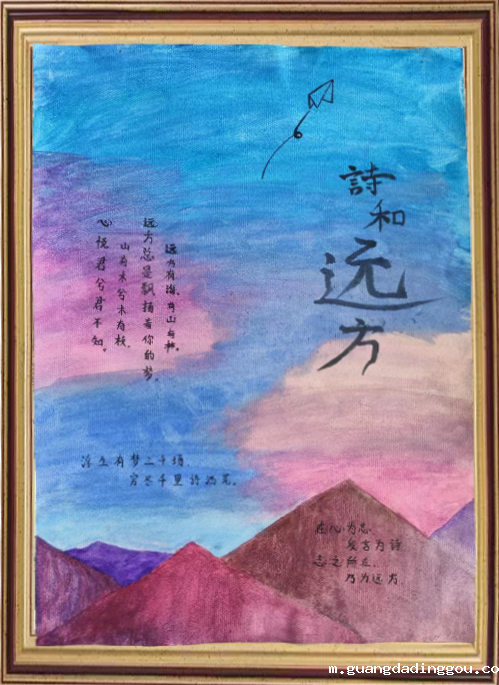 詩和
远方
远方有海、有山有
远方总是飘扬着你的梦，
山有木兮木有枝，
心悦君兮君不知。
浮生有梦三千场
穷尽千里诗酒荒。
在心为志
发言为诗
志之所在
乃为远方
m.guangdadinggou.co